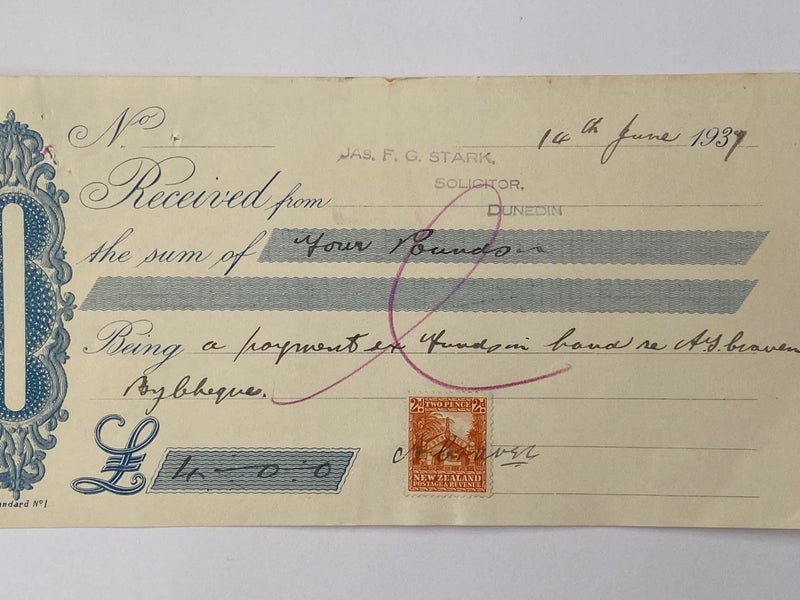 No 14th June 1937
JAS. F. G. STARK,
SOLICITOR,
DUNEDIN
Received from
the sum of Four Pounds
Being a payment ex Funds in hand re A. S. Craven
By Cheque.
£ 4 - 0 : 0
2d TWO PENCE 2d
NEW ZEALAND
POSTAGE & REVENUE
A Craven
andard No 1